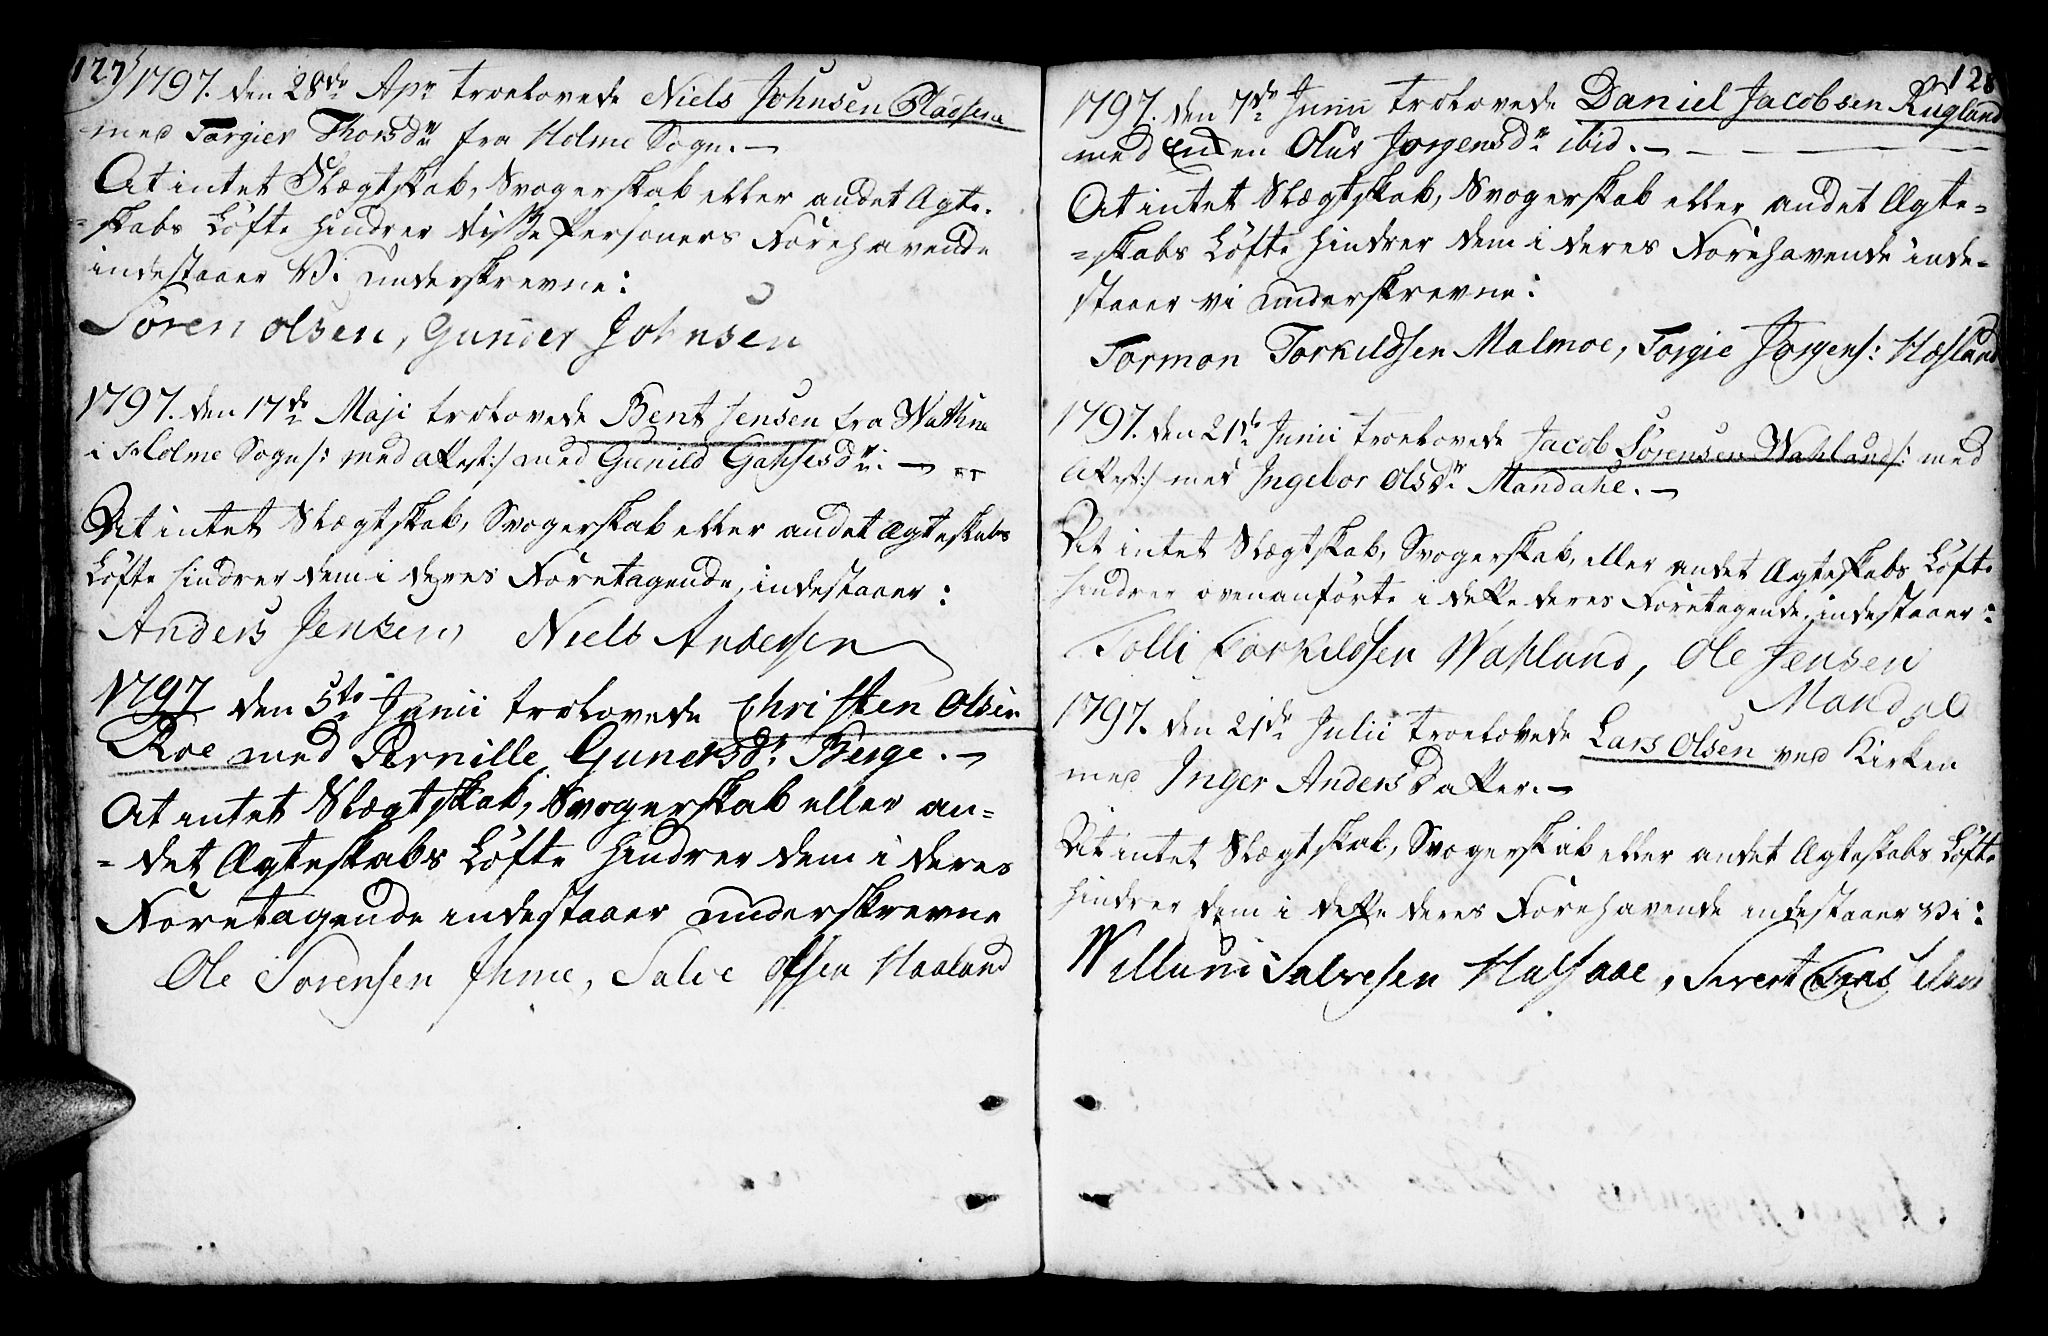 127
1797. den 28de Apr troelovede Niels Johnsen Pladsene
med Torgier Thorsdr fra Holme Sogn. —
At intet Slægtskab, Svogerskab eller andet Ægte-
=skabs Løfte hindrer disse Personers Forehavende
indestaaer Vi underskrevne:
Søren Olsen, Gunder Johnsen
1797. den 17de Maji trolovede Bent Jensen fra Wathne
i Holme Sogn /: med attest :/ med Gunild
At intet Slægtskab, Svogerskab eller andet Ægteskabs
Løfte hindrer dem i deres Foretagende, indestaaer:
Anders Jensen, Niels Andersen
1797 den 5te Junii trolovede Christen Olsen
Roe med Pernille Gunersdr Berge. —
At intet Slægtskab, Svogerskab eller an=
=det Ægteskabs Løfte hindrer dem i deres
Foretagende indestaaer underskrevne
Ole Sørensen Ihme, Salve Haaland
128
1797. den 7de Junii trolovede Daniel Jacobsen Rugland
med Enken Olur Jørgensdr ibid. —
At intet Slægtskab, Svogerskab eller andet Ægte=
=skabs Løfte hindrer dem i deres Forehavende inde=
staaer vi underskrevne:
Tormon Torkildsen Malmoe, Torgie Jørgens: Høsland
1797. den 21de Junii troelovede Jacob Sørensen Wahland /: med
Attest :/ med Ingebor Olsdr Mandahl. —
At intet Slægtskab, Svogerskab, eller andet Ægteskabs Løfte
hindrer ovenanførte i dette deres Foretagende, indestaaer:
Tolli Torkildsen Wahland, Ole Jensen
Mandal
1797. den 21de Julii troelovede Lars Olsen ved Kirken
med Inger Anders Datter. —
At intet Slægtskab, Svogerskab eller andet Ægteskabs Løfte
hindrer dem i dette deres Forehavende indestaaer Vi:
Willum Salvesen Halsaae, Sivert